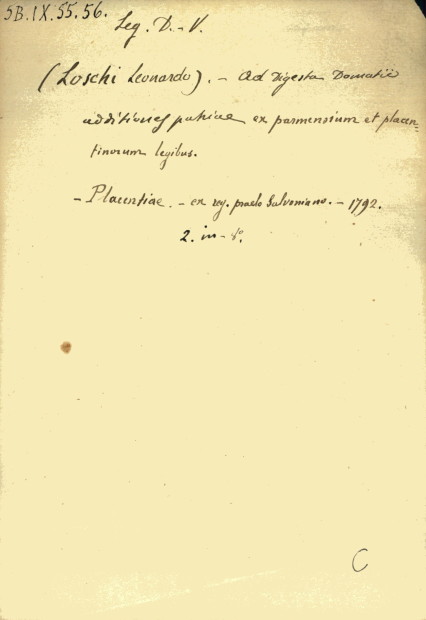 5B.IX.55.56.
Leg. D.-V.
(Loschi Leonardo). - Ad Digesta Domatii
additiones patriae ex parmensium et placen=
tinorum legibus.
- Placentiae. - ex reg. praelo Salvoniano. - 1792.
2. in-8º.
C